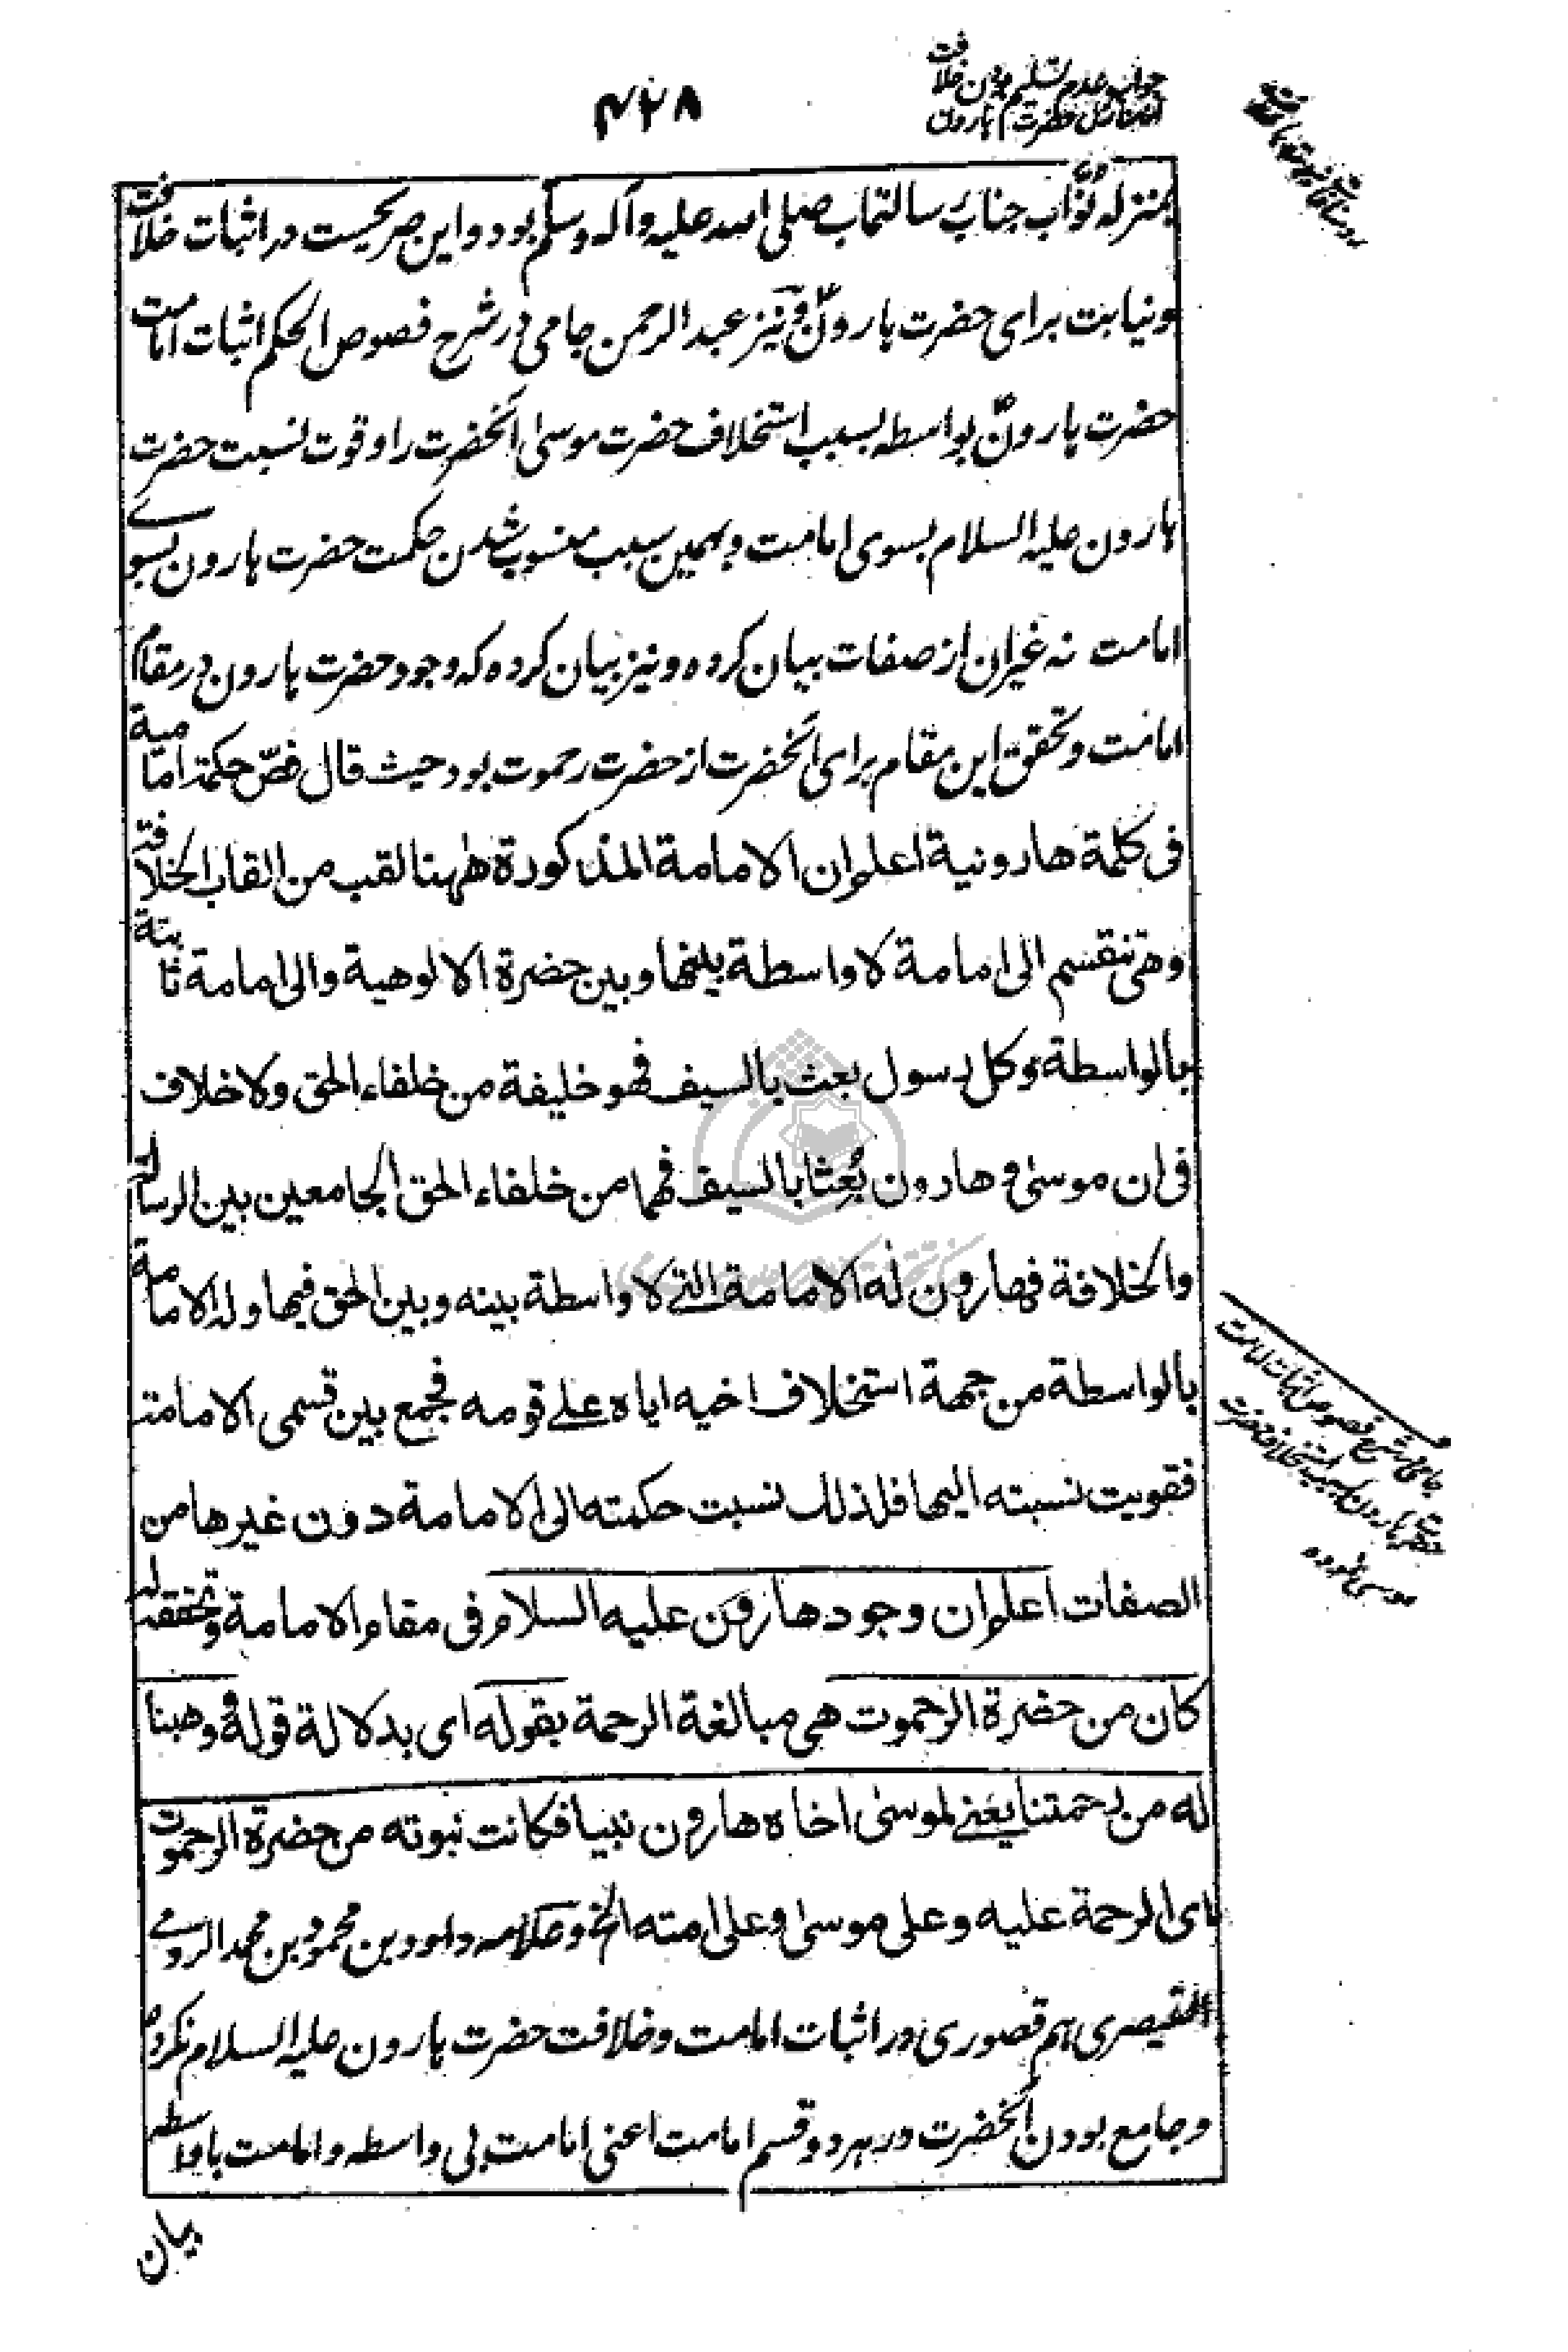 ۴۲۸
جواب عدم تسلیم بودن خلافت
از منازل حضرت هارون
بمنزله نوّاب جناب رسالتمآب صلی الله علیه وآله وسلم بود و این صریحست در اثبات خلافت
ونیابت برای حضرت هارونؑ و نیز عبد الرحمن جامی در شرح فصوص الحکم اثبات امامت
حضرت هارونؑ بواسطه بسبب استخلاف حضرت موسیٰ آنحضرت را وقوت نسبت حضرت
هارون علیه السلام بسوی امامت وبهمین سبب منسوب شدن حکمت حضرت هارون بسوے
امامت نه غیر آن از صفات بیان کرده و نیز بیان کرده که وجود حضرت هارون در مقام
امامت وتحقق این مقام برای آنحضرت از حضرت رحموت بود حیث قال فصّ حکمة امامیة
فی کلمة هارونیة اعلم ان الامامة المذکورة هٰهنا لقب من القاب الخلافة
وهی تنقسم الی امامة لا واسطة بینها وبین حضرة الالوهیة والی امامة ثابتة
بالواسطة وکل رسول بعث بالسیف فهو خلیفة من خلفاء الحق ولا خلاف
فی ان موسیٰ وهارون بُعِثا بالسیف فهما من خلفاء الحق الجامعین بین الرسالة
والخلافة فهارون له الامامة التے لا واسطة بینه وبین الحق فیها وله الامامة
بالواسطة من جهة استخلاف اخیه ایاه علے قومه فجمع بین قسمی الامامة
فقویت نسبته الیها فلذلك نسبت حکمته الی الامامة دون غیرها من
الصفات اعلم ان وجود هارون علیه السلام فی مقام الامامة وتحققه له
کان من حضرة الرحموت هی مبالغة الرحمة بقوله ای بدلالة قوله وهبنا
له من رحمتنا یعنے لموسیٰ اخاه هارون نبیا فکانت نبوته من حضرة الرحموت
ای الرحمة علیه وعلی موسیٰ وعلی امته الخ وعلامه داود بن محمود بن محمد الرومے
القیصری هم قصوری در اثبات امامت وخلافت حضرت هارون علیه السلام نکرده
وجامع بودن آنحضرت در هر دو قسم امامت اعنی امامت بی واسطه وامامت باواسطه
بیان
جامی در شرح فصوص اثبات امامت
حضرت هارون بسبب استخلاف حضرت
موسی نموده